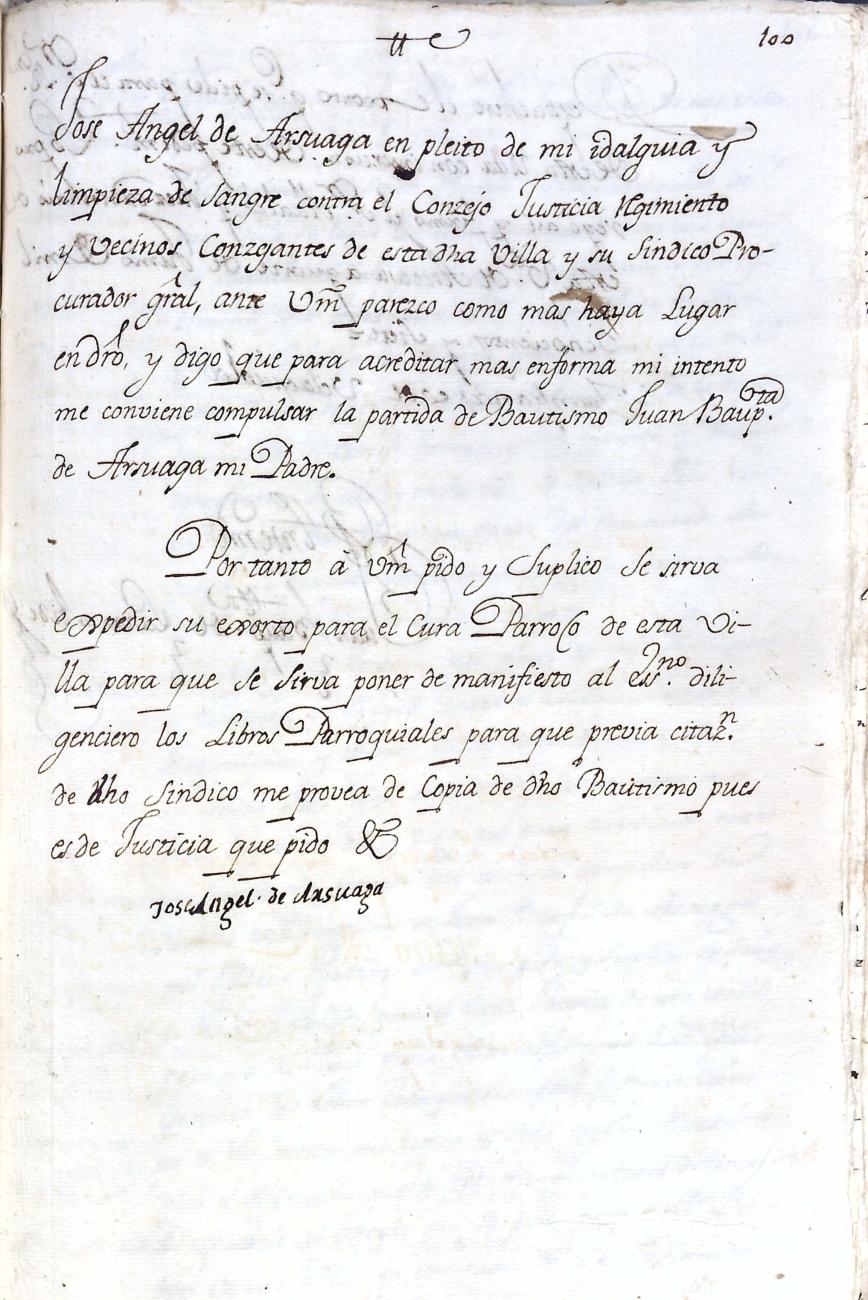 100
Jose Angel de Arsuaga en pleito de mi idalguia y
limpieza de sangre contra el Conzejo Justicia Regimiento
y vecinos Conzejantes de esta dha Villa y su Sindico Pro-
curador gral, ante Vm parezco como mas haya Lugar
en dro, y digo que para acreditar mas enforma mi intento
me conviene compulsar la partida de Bautismo Juan Baup.ta
de Arsuaga mi Padre.
Por tanto â Vm pido y Suplico se sirva
expedir su exorto para el Cura Parroco de esta Vi-
lla para que se sirva poner de manifiesto al es.no dili-
genciero los Libros Parroquiales para que previa citaz.n
de dho Sindico me provea de Copia de dho Bautismo pues
es de Justicia que pido &
Jose Angel de Arsuaga